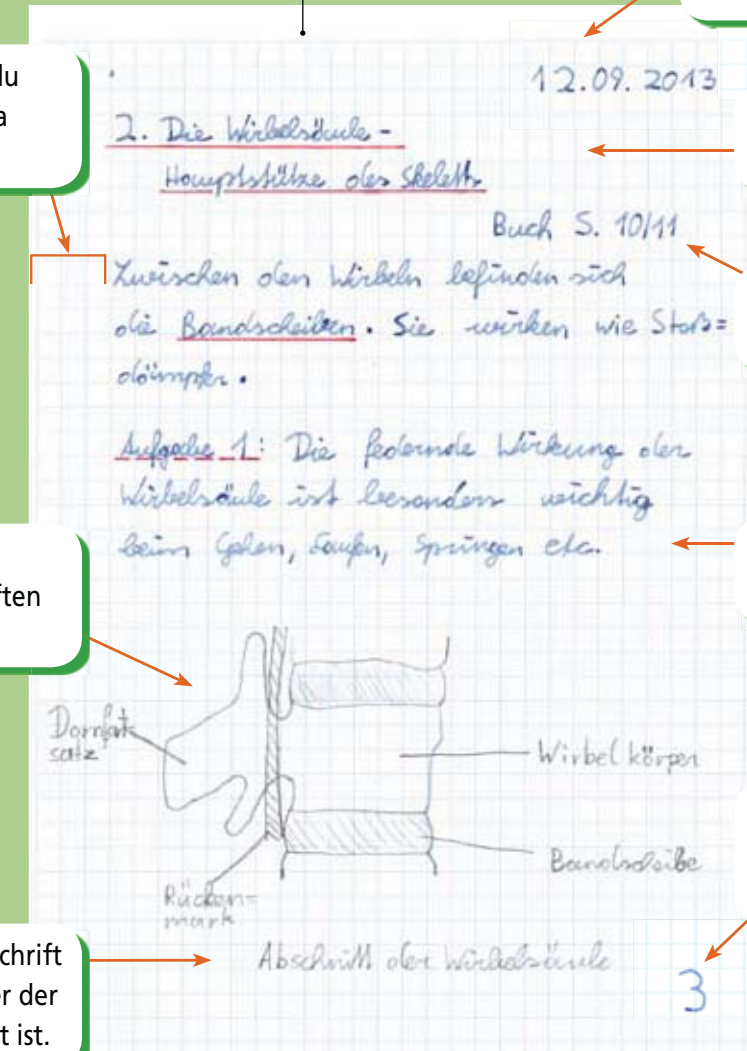 du
a
12.09.2013
2. Die Wirbelsäule -
Hauptstütze des Skeletts
Buch S. 10/11
Zwischen den Wirbeln befinden sich
die Bandscheiben. Sie wirken wie Stoß=
dämpfer.
Aufgabe 1: Die federnde Wirkung der
Wirbelsäule ist besonders wichtig
beim Gehen, Laufen, Springen etc.
ften
Wirbelkörper
Bandscheibe
Rücken=
mark
chrift
er der
t ist.
Abschnitt der Wirbelsäule
3